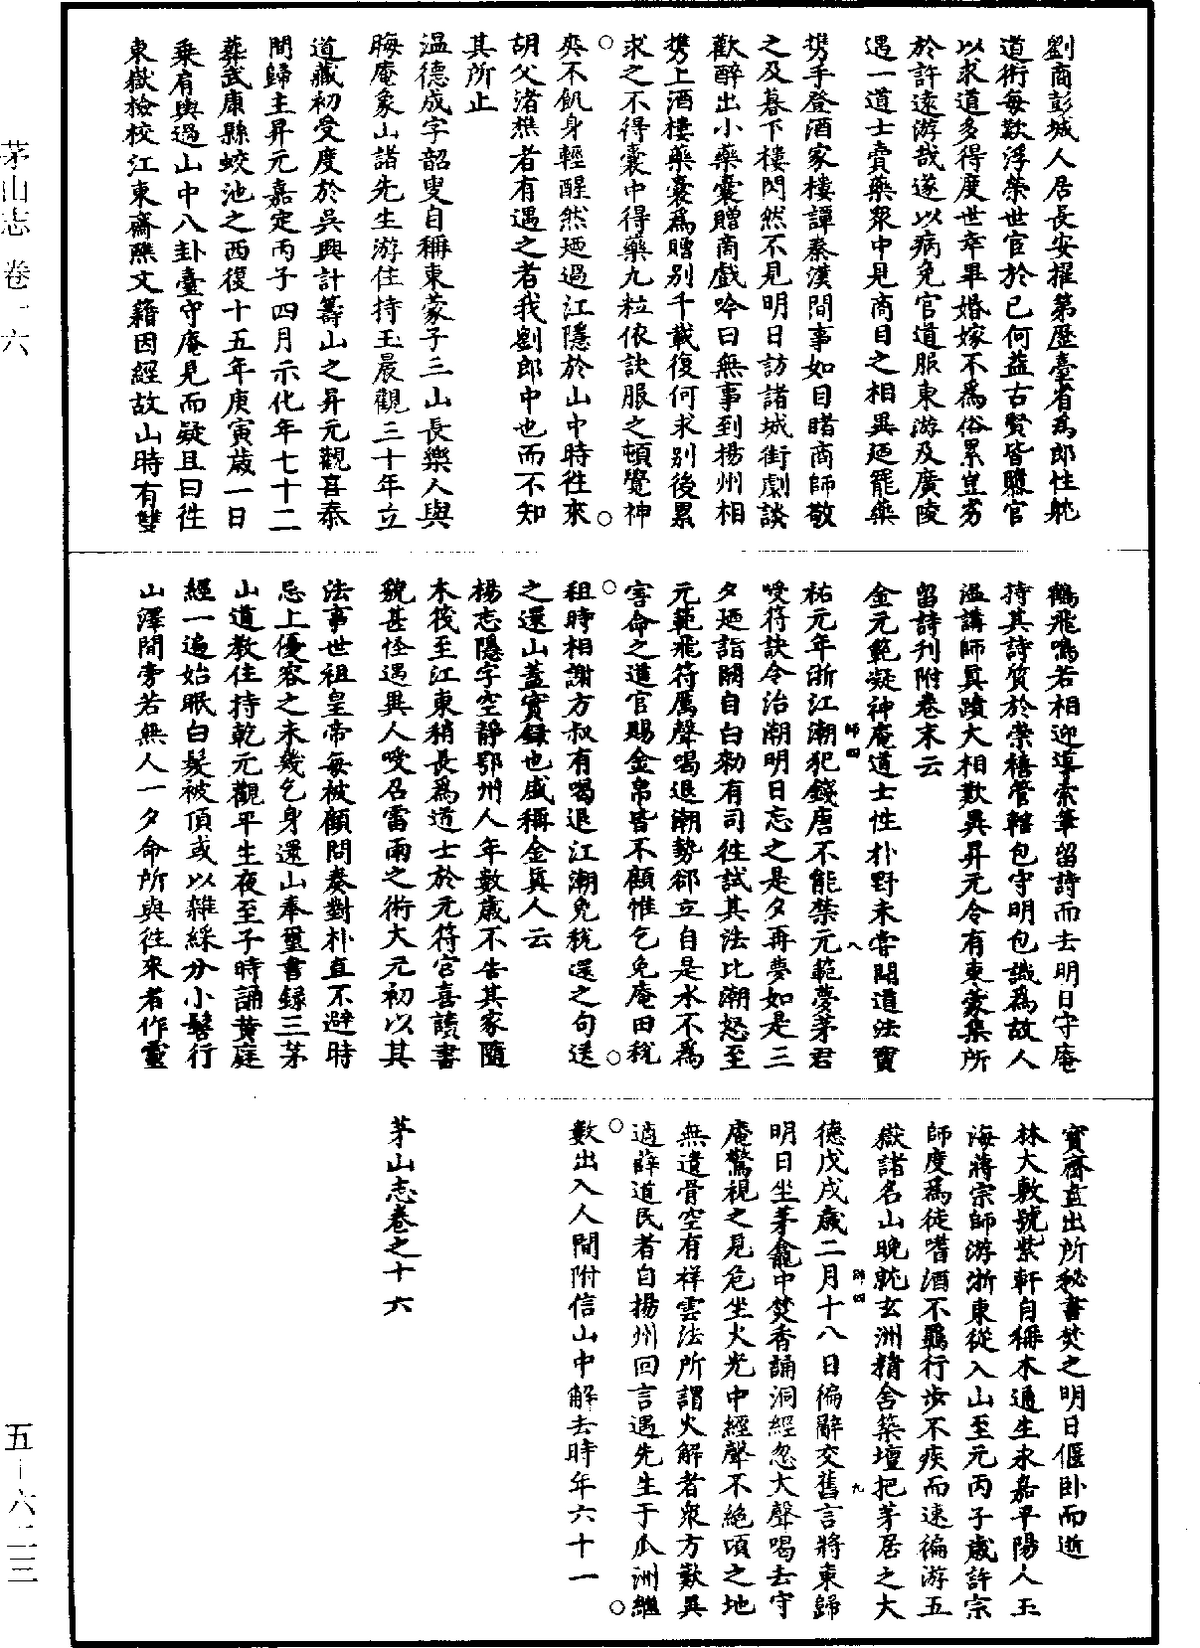 劉商彭城人居長安擢第歷臺省為郎性躭
道術每歎浮榮世官於己何益古賢皆隳官
以求道多得度世幸畢婚嫁不為俗累豈劣
於許遠游哉遂以病免官道服東游及廣陵
遇一道士賣藥眾中見商目之相異廼罷藥
携手登酒家樓譚秦漢間事如目睹商師敬
之及暮下樓閃然不見明日訪諸城街劇談
歡醉出小藥囊贈商戲吟曰無事到揚州相
携上酒樓藥囊為贈別千載復何求別後累
求之不得囊中得藥九粒依訣服之頓覺神
爽不飢身輕醒然廼過江隱於山中時往來
胡父渚樵者有遇之者我劉郎中也而不知
其所止
温德成字韶叟自稱東蒙子三山長樂人與
晦庵象山諸先生游住持玉晨觀三十年立
道藏初受度於吳興計籌山之昇元觀喜泰
間歸主昇元嘉定丙子四月示化年七十二
葬武康縣蛟池之西復十五年庚寅歲一日
乗肩輿過山中八卦臺守庵見而疑且曰往
東嶽檢校江東齋醮文籍因經故山時有雙
鶴飛鳴若相迎導索筆留詩而去明日守庵
持其詩質於崇禧管轄包守明包識為故人
温講師真蹟大相歎異昇元今有東蒙集所
留詩刊附卷末云
金元範凝神庵道士性朴野未嘗聞道法寶
祐元年浙江潮犯錢唐不能禁元範夢茅君
㕞符訣令治潮明日忘之是夕再夢如是三
夕廼詣闕自白勑有司往試其法比潮怒至
元範飛符厲聲喝退潮勢郤立自是水不為
害命之道官賜金帛皆不顧惟乞免庵田稅
租時相謝方叔有喝退江潮免稅還之句送
之還山蓋實録也咸稱金真人云
楊志隱字空靜鄂州人年數歲不告其家隨
木筏至江東稍長為道士於元符宮喜讀書
貌甚怪遇異人㕞召雷雨之術大元初以其
法事世祖皇帝每被顧問奏對朴直不避時
忌上優容之未幾乞身還山奉璽書録三茅
山道教住持乾元觀平生夜至子時誦黃庭
經一遍始眠白髮被頂或以雜綵分小髻行
山澤間旁若無人一夕命所與往來者作靈
寶齋盡出所秘書焚之明日偃卧而逝
林大敷號紫軒自稱木通生永嘉平陽人玉
海蔣宗師游浙東從入山至元丙子歲許宗
師度為徒嗜酒不羈行步不疾而速徧游五
嶽諸名山晚躭玄洲精舍築壇把茅居之大
德戊戌歲二月十八日徧辭交舊言將東歸
明日坐茅龕中焚香誦洞經忽大聲喝去守
庵驚視之見危坐火光中經聲不絕頃之地
無遺骨空有祥雲法所謂火解者眾方歎異
適薛道民者自揚州回言遇先生于瓜洲繼
數出入人間附信山中解去時年六十一
茅山志卷之十六
師四
八
師四
九
茅山志 卷十六
五―六二三